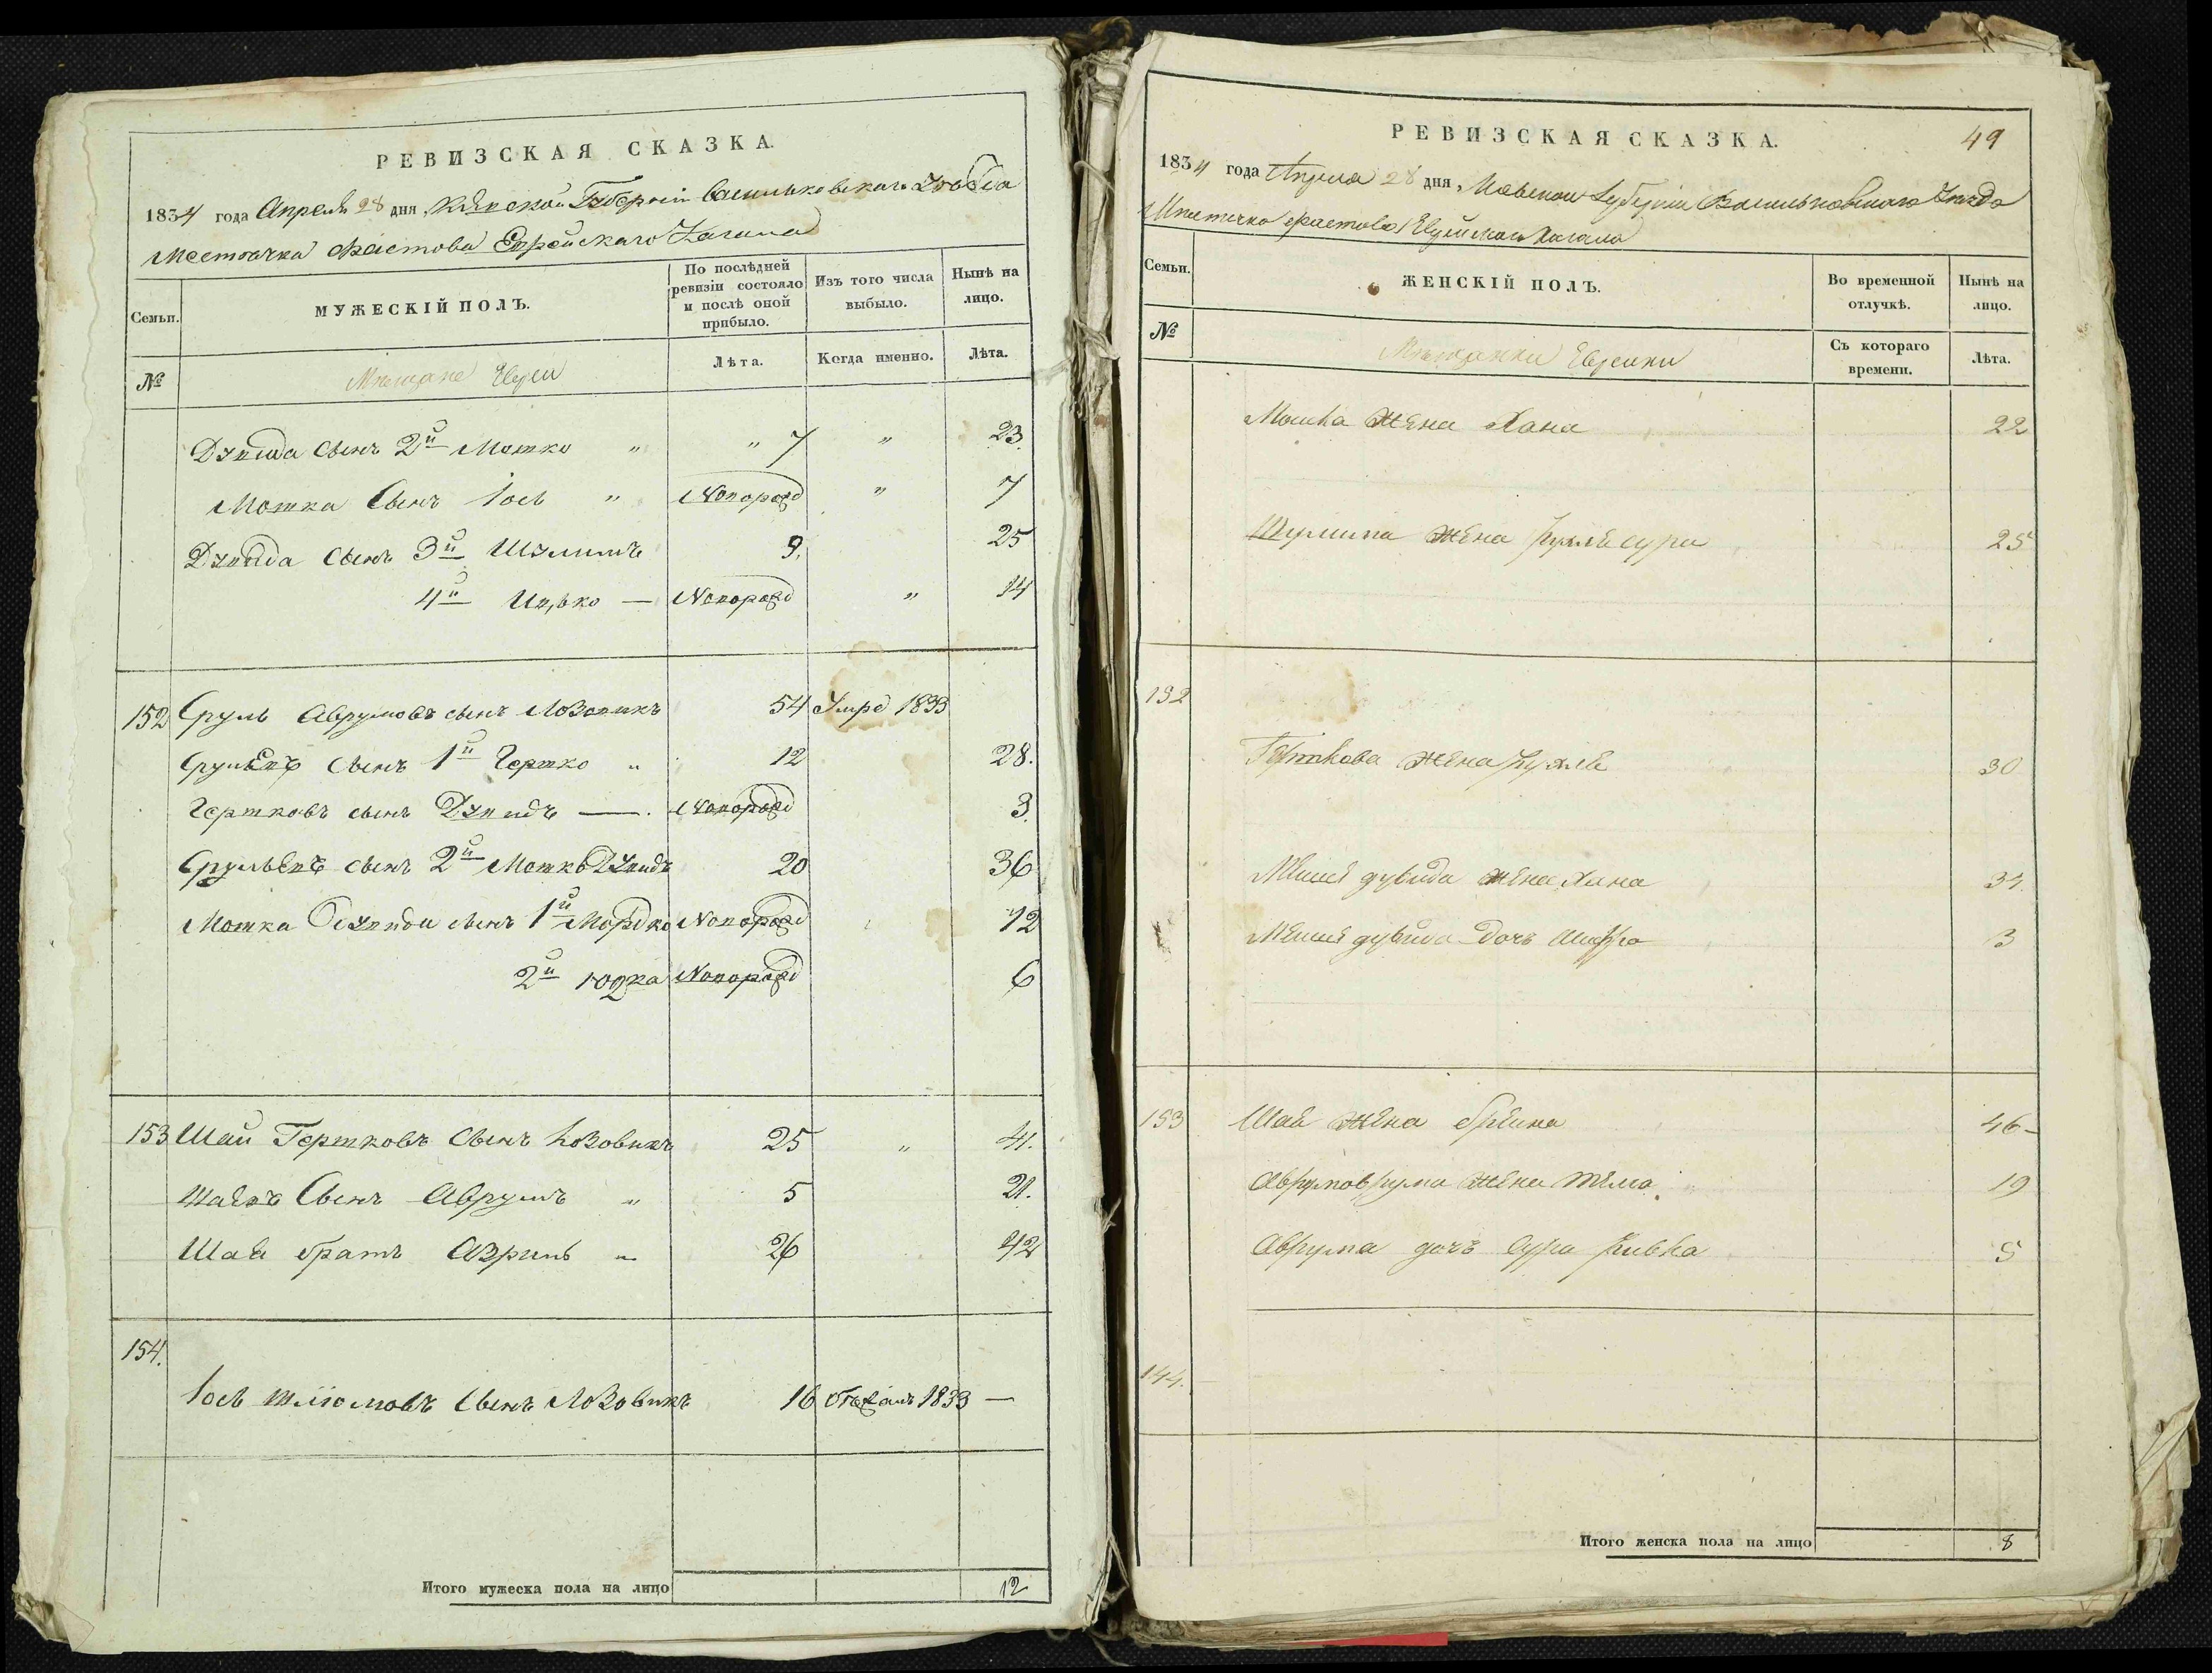 РЕВИЗСКАЯ СКАЗКА.
1834 года Апреля 28 дня Кіевской Губерніи Васильковскаго Уезда
Местечка Фастова Еврейскаго Кагала
Семьи.
МУЖЕСКІЙ ПОЛЪ.
По послѣдней ревизіи состояло и послѣ оной прибыло.
Изъ того числа выбыло.
Нынѣ на лицо.
№
Мещане Евреи
Лѣта.
Когда именно.
Лѣта.
Дувида сынъ 2й Мотко " " 7 " 23
Мотка сынъ Іось " Новорожд " 7
Дувида сынъ 3й Шулимъ 9. 25
4й Ицько — Новорожд " 14
152 Сруль Аврумовъ сынъ Лозовикъ 54 Умре 1833
Срулевъ сынъ 1й Гертко " 12 28.
Гертковъ сынъ Дувидъ — Новорожд 3.
Срульевъ сынъ 2й Мотко Дувидъ 20 36
Мотка Дувида сынъ 1й Мордко Новорожд 12
2й Юдка Новорожд 6
153 Шая Гертковъ сынъ Лозовикъ 25 " 41.
Шаевъ Сынъ Аврумъ " 5 21.
Шаи братъ Азриль " 26 42
154.
Іось Шліомовъ сынъ Лозовикъ 16 1833 —
Итого мужеска пола на лицо 12
РЕВИЗСКАЯ СКАЗКА.
49
1834 года Апреля 28 дня Кіевской Губерніи Васильковскаго Уезда
Местечка Фастова Еврейскаго Кагала
Семьи.
ЖЕНСКІЙ ПОЛЪ.
Во временной отлучкѣ.
Нынѣ на лицо.
№
Мещанки Еврейки
Съ котораго времени.
Лѣта.
Мошка жена Хана 22
Шулима жена Рухля Сура 25
152
Герткова жена Рухля 30
Дувида жена Хана 34.
Дувида дочь 3
153 Шаи жена Бреина 46
жена 19
Аврума дочь Сура Ривка 5
144.
Итого женска пола на лицо 8